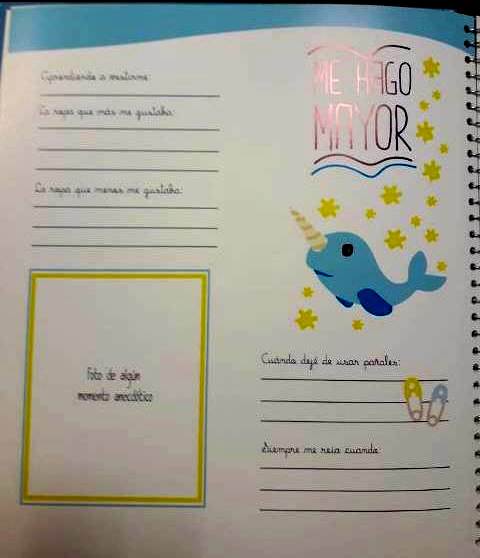 Aprendiendo a vestirme:
La ropa que más me gustaba:
La ropa que menos me gustaba:
Foto de algún
momento anecdótico
ME HAGO
MAYOR
Cuándo dejé de usar pañales:
Siempre me reía cuando: